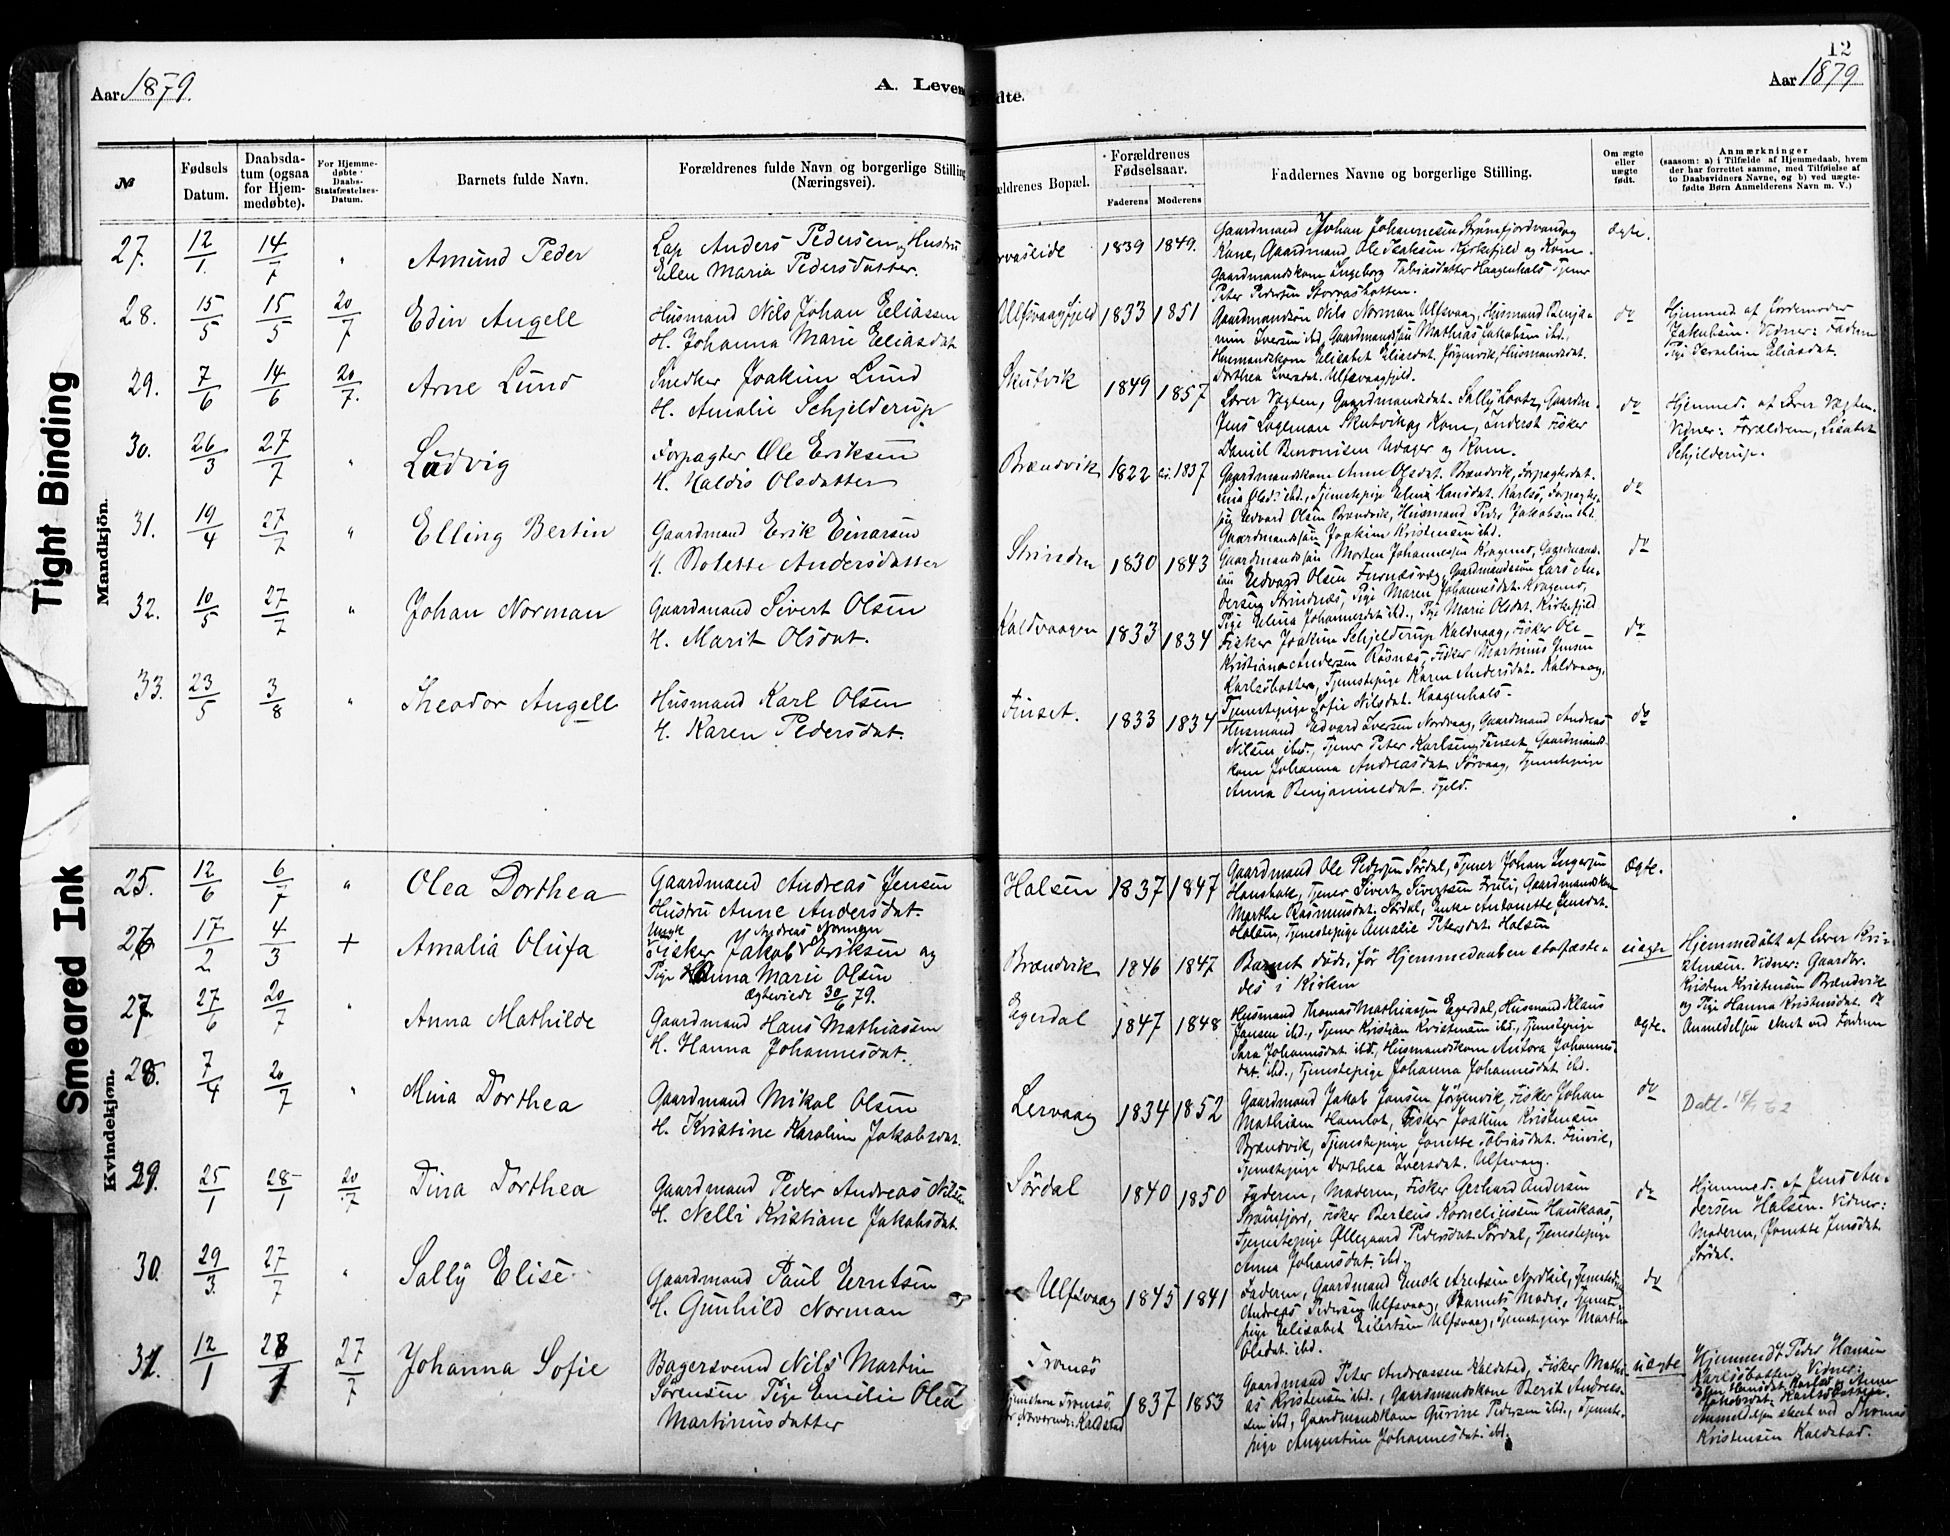 12
Aar 1879.
A. Leven
dte.
Aar 1879
№
Fødsels Datum.
Daabsdatum (ogsaa for Hjemmedøbte).
For Hjemmedøbte Daabs-Stadfæstelses-Datum.
Barnets fulde Navn.
Forældrenes fulde Navn og borgerlige Stilling (Næringsvei).
ældrenes Bopæl.
Forældrenes Fødselsaar.
Faderens
Moderens
Faddernes Navne og borgerlige Stilling.
Om ægte eller uægte født.
Anmærkninger
(saasom: a) i Tilfælde af Hjemmedaab, hvem der har forrettet samme, med Tilføielse af to Daabsvidners Navne, og b) ved uægtefødte Børn Anmelderens Navn m. V.)
Tight Binding
Smeared Ink
Mandkjön.
27. 12/1. 14/7 " Amund Peder
Lap Anders Pedersen og Hustru
Elen Maria Pedersdatter.
1839 1849.
Gaardmand Johan Johannesen
Kone, Gaardmand Ole Isaksen Kirkefjeld og Kone
Gaardmandskone Ingeborg Tobiasdatter Haagenhals Tjener
Peter Pedersen
Ægte.
28. 15/5 15/5 20/7 Edin Angell
Husmand Nils Johan Eliassen
H. Johanna Marie Eliasdat
Ulfsvaagfjeld 1833 1851
Gaardmandsøn Nils Norman Ulfsvaag, Husmand Benja-
min Iversen ibd, Gaardmandsøn Mathias Jakobsen ibd.
Husmandskone Elisabet Eliasdat. Jörgenvik, Husmandsdat.
Dorthea Iversdat. Ulfsvaagfjeld.
do
Hjemmed af Jordemoder
Jakobsen. Vidner: Faderen
Pige Eliasdat.
29. 7/6 14/6 20/7. Arne Lund
Snedker Joakim Lund
H. Amalie Schjelderup
Skutvik 1849 1857
Lærer Vegten, Gaardmandsdat. Sally Lootz, Gaardm.
Jens Lagman Skutvik og Kone, Inderst Fisker
Daniel Benonisen Udager og Kone.
do
Hjemmed. af Lærer Vegten.
Vidner: Forældrene, Lisabet
Schjelderup.
30. 26/3 27/7 " Ludvig
Forpagter Ole Eriksen
H. Haldis Olsdatter
Brændvik 1822 1837
Gaardmandskone Anne Olsdat. Brændvik, Forpagterdat.
Olsd. ibd., Tjenestepige Elina Hansdat. Karlsö, Forpagter-
Edvard Olsen Brændvik, Husmand Peder Jakobsen ibd.
Gaardmandssøn Joakim Kristensen ibd.
do
31. 19/4 27/7 " Elling Bertin
Gaardmand Erik Einarsen
H. Nolette Andersdatter
Strinden 1830 1843
Gaardmandssøn Morten Johannessen Kragmo, Gaardmands-
søn Edvard Olsen Furnesvæg, Gaardmandssøn Lars An-
dersen Strindnes, Pige Maren Johannesdat. Kragmo,
Pige Elina Johannesdat ibd., Pige Marie Olsdat. Kirkefjeld
do
32. 10/5 27/7 " Johan Norman
Gaardmand Sivert Olsen
H. Marit Olsdat.
Kaldvaagen 1833 1834
Fisker Joakim Schjelderup Kaldvaag, Fisker Ole
Kristian Andersen Røsnes, Fisker Martinus Jensen
Karlsöbotten, Tjenestepige Karen Andersdat. Kaldvaag,
Tjenestepige Sofie Nilsdat. Haagenhals.
do
33. 23/5 3/8 " Theodor Angell
Husmand Karl Olsen
H. Karen Pedersdat.
Finset. 1833 1834
Husmand Edvard Iversen Nordvaag, Gaardmand Andreas
Nilsen ibd., Tjener Peter Karlsen Finset, Gaardmands-
kone Johanna Andreasdat Sörvaag, Tjenestepige
Anna Benjaminsdat. Fjeld.
do
Kvindekjøn.
25. 12/6 6/7 " Olea Dorthea
Gaardmand Andreas Jensen
Hustru Anne Andersdat.
Halsen 1837 1847
Gaardmand Ole Pedersen Sördal, Tjener Johan Ingersen
Tjener Sivert Sivertsen Gaardmandskone
Marthe Rasmusdat. Sördal, Enke Antonette Jensdat.
Halsen, Tjenestepige Amalie Petersdat Halsen
Ægte.
26 17/2 4/3 + Amalia Olufa
Ungk. Andreas Norman
Fisker Jakob Eriksen og
Pige Hanna Marie Olsen
Ægteviede 30/6 79.
Brændvik 1846 1847
Barnet döde för Hjemmedaaben stadfæste-
des i Kirken
uægte
Hjemmedöbt af Lærer Kri-
stensen. Vidner: Gaardbr.
Kristen Kristensen Brændvik
og Pige Hanna Kristensdat. do
Anmeldelsen skeet ved Faderen
27 27/6 20/7 " Anna Mathilde
Gaardmand Hans Mathiassen
H. Hanna Johannesdat.
Egerdal 1847 1848
Husmand Thomas Mathiassen Egerdal, Husmand Klaus
Jansen ibd., Tjener Kristian Kristensen ibd., Tjenestepige
Sara Johannesdat ibd., Husmandskone Antora Johannes-
dat. ibd., Tjenestepige Johanna Johannesdat ibd.
ægte.
28. 7/4 20/7 " Mina Dorthea
Gaardmand Mikal Olsen
H. Kristine Karoline Jakobsdat.
Lervaag 1834 1852
Gaardmand Jakob Jansen Jörgenvik, Fisker Johan
Mathisen Hamlot, Fisker Joakim Kristensen
Brændvik, Tjenestepige Jonette Tobiasdat. Finvik,
Tjenestepige Dorthea Iversdat. Ulfsvaag.
do
29. 25/1 28/1 20/7 Dina Dorthea
Gaardmand Peder Andreas Nilsen
H. Nelli Kristiane Jakobsdat.
Sördal 1840 1850
Faderen, Moderen, Fisker Gerhard Andersen
Strömfjor, Fisker Berteus Korneliussen Haukaas,
Tjenestepige Ollegaard Pedersdat. Sördal, Tjenestepige
Anna Johansdat ibd.
do
Hjemmed. af Jens An-
dersen Halsen. Vidner:
Moderen, Jonette Jensdat
Sørdal.
30. 29/3 27/7 " Sally Elise
Gaardmand Paul Erntsen
H. Gunhild Norman
Ulfsvaag 1845 1841
Faderen, Gaardmand Enok Arentsen Nordkil, Tjenestedr.
Andreas Pedersen Ulfsvaag, Barnets Moder, Tjeneste-
pige Elisabet Eilertsen Ulfsvaag, Tjenestepige Marthe
Olsdat. ibd.
do
31. 12/1 28/1 27/7 Johanna Sofie
Bagersvend Nils Martin
Sörensen Pige Emelie Olea
Martinusdatter
Tromsö
Tromsö.
Nærværende: Kaldstad 1837 1853
Gaardmand Peter Andreassen Kaldstad, Fisker Mathi-
as Kristensen ibd., Gaardmandskone Berit Andreas-
sen ibd, Gaardmandskone Gurine Pedersen ibd., Tjeneste-
pige Augustine Johannesdat. ibd.
uægte
Hjemmedt. Peder Hansen
Karlsöbotten. Vidner:
Hansdat. Karlsö og Anne
Jakobsdat. Karlsöbotten.
Anmeldelsen skeet ved Thomas
Kristensen Kaldstad.